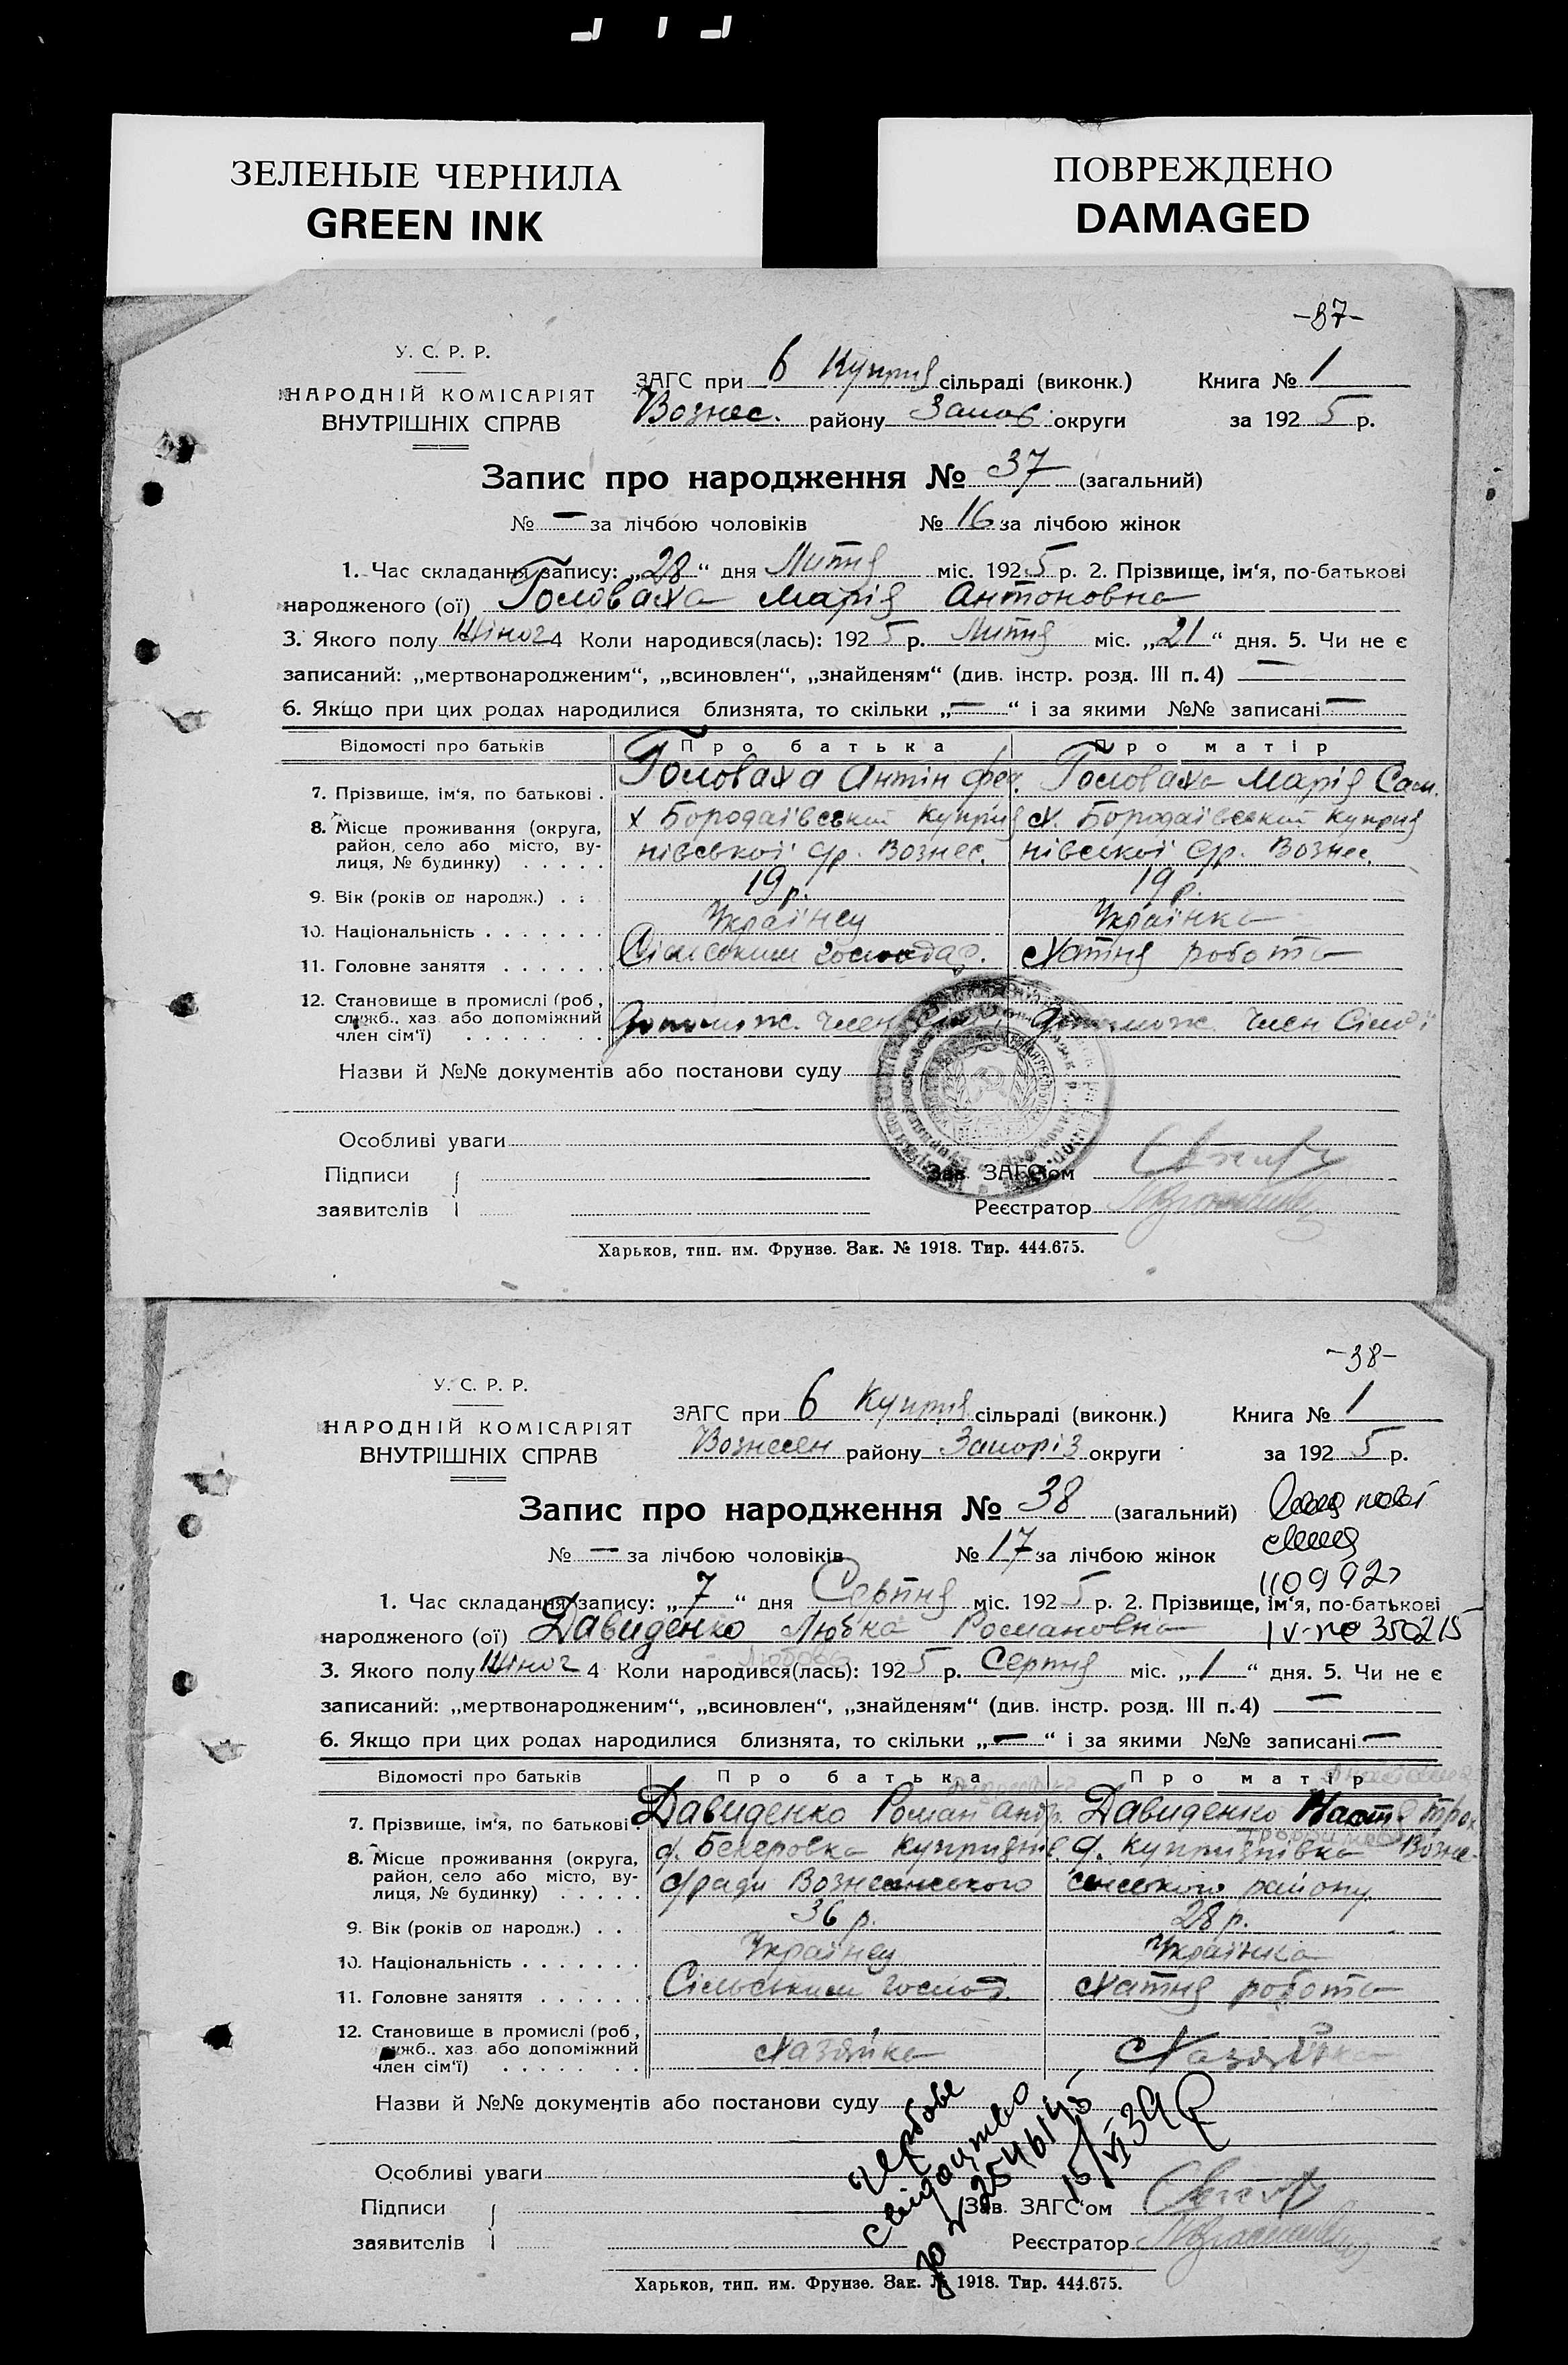 ЗЕЛЕНЫЕ ЧЕРНИЛА
GREEN INK
ПОВРЕЖДЕНО
DAMAGED
-37-
У. С. Р. Р.
НАРОДНІЙ КОМІСАРІЯТ
ВНУТРІШНІХ СПРАВ
ЗАГС при 6 Куприя сільраді (виконк.) Книга № 1
Вознес. району Запор округи за 1925 р.
Запис про народження № 37 (загальний)
№ — за лічбою чоловіків № 16 за лічбою жінок
1. Час складання запису: „28“ дня Липня міс. 1925 р. 2. Прізвище, ім‘я, по-батькові
народженого (ої) Головаха Марія Антоновна
3. Якого полу Жіноч 4 Коли народився(лась): 1925 р. Липня міс. „21“ дня. 5. Чи не є
записаний: „мертвонародженим“, „всиновлен“, „знайденям“ (див. інстр. розд. III п. 4) —
6. Якщо при цих родах народилися близнята, то скільки „—“ і за якими №№ записані —
Відомості про батьків Про батька Про матір
7. Прізвище, ім‘я, по батькові . Головаха Антін Фед. Головаха Марія Сам.
8. Місце проживання (округа, район, село або місто, вулиця, № будинку) . . . . х Бородаївський Куприянівської с/р. Вознес. х. Бородаївський Куприянівської с/р. Вознес.
9. Вік (років од народж.) . . 19 р. 19 р.
10. Національність . . . . . . . Українец Українка
11. Головне заняття . . . . . . Сільським господар. Хатня робота
12. Становище в промислі (роб., служб., хаз. або допоміжний член сім‘ї) . . . . . . . Допомож. член Допомож. член Сімої
Назви й №№ документів або постанови суду
Особливі уваги
Підписи
заявителів
Зав. ЗАГС‘ом
Реєстратор
Харьков, тип. им. Фрунзе. Зак. № 1918. Тир. 444.675.
-38-
У. С. Р. Р.
НАРОДНІЙ КОМІСАРІЯТ
ВНУТРІШНІХ СПРАВ
ЗАГС при 6 Куприя сільраді (виконк.) Книга № 1
Вознесен району Запоріз округи за 1925 р.
Запис про народження № 38 (загальний)
№ — за лічбою чоловіків № 17 за лічбою жінок
1. Час складання запису: „7“ дня Серпня міс. 1925 р. 2. Прізвище, ім‘я, по-батькові
народженого (ої) Давиденко Любка Романовна
Любовь
3. Якого полу Жіноч 4 Коли народився(лась): 1925 р. Серпня міс. „1“ дня. 5. Чи не є
записаний: „мертвонародженим“, „всиновлен“, „знайденям“ (див. інстр. розд. III п. 4) —
6. Якщо при цих родах народилися близнята, то скільки „—“ і за якими №№ записані —
Відомості про батьків Про батька Про матір
7. Прізвище, ім‘я, по батькові . Давиденко Роман Анд. Давиденко Настя Трох
8. Місце проживання (округа, район, село або місто, вулиця, № будинку) . . . . . с/ради Вознесенського Куприянівка Вознесенського району
9. Вік (років од народж.) . . 36 р. 28 р.
10. Національність . . . . . . . Українец Українка
11. Головне заняття . . . . . . Сільським господ. Хатня робота
12. Становище в промислі (роб., служб., хаз. або допоміжний член сім‘ї) . . . . . . . Хазяйка Хазяйка
Назви й №№ документів або постанови суду
гербове
свідоцтво
15/VI 39
Особливі уваги
Підписи
заявителів
Зав. ЗАГС‘ом
Реєстратор
Харьков, тип. им. Фрунзе. Зак. № 1918. Тир. 444.675.